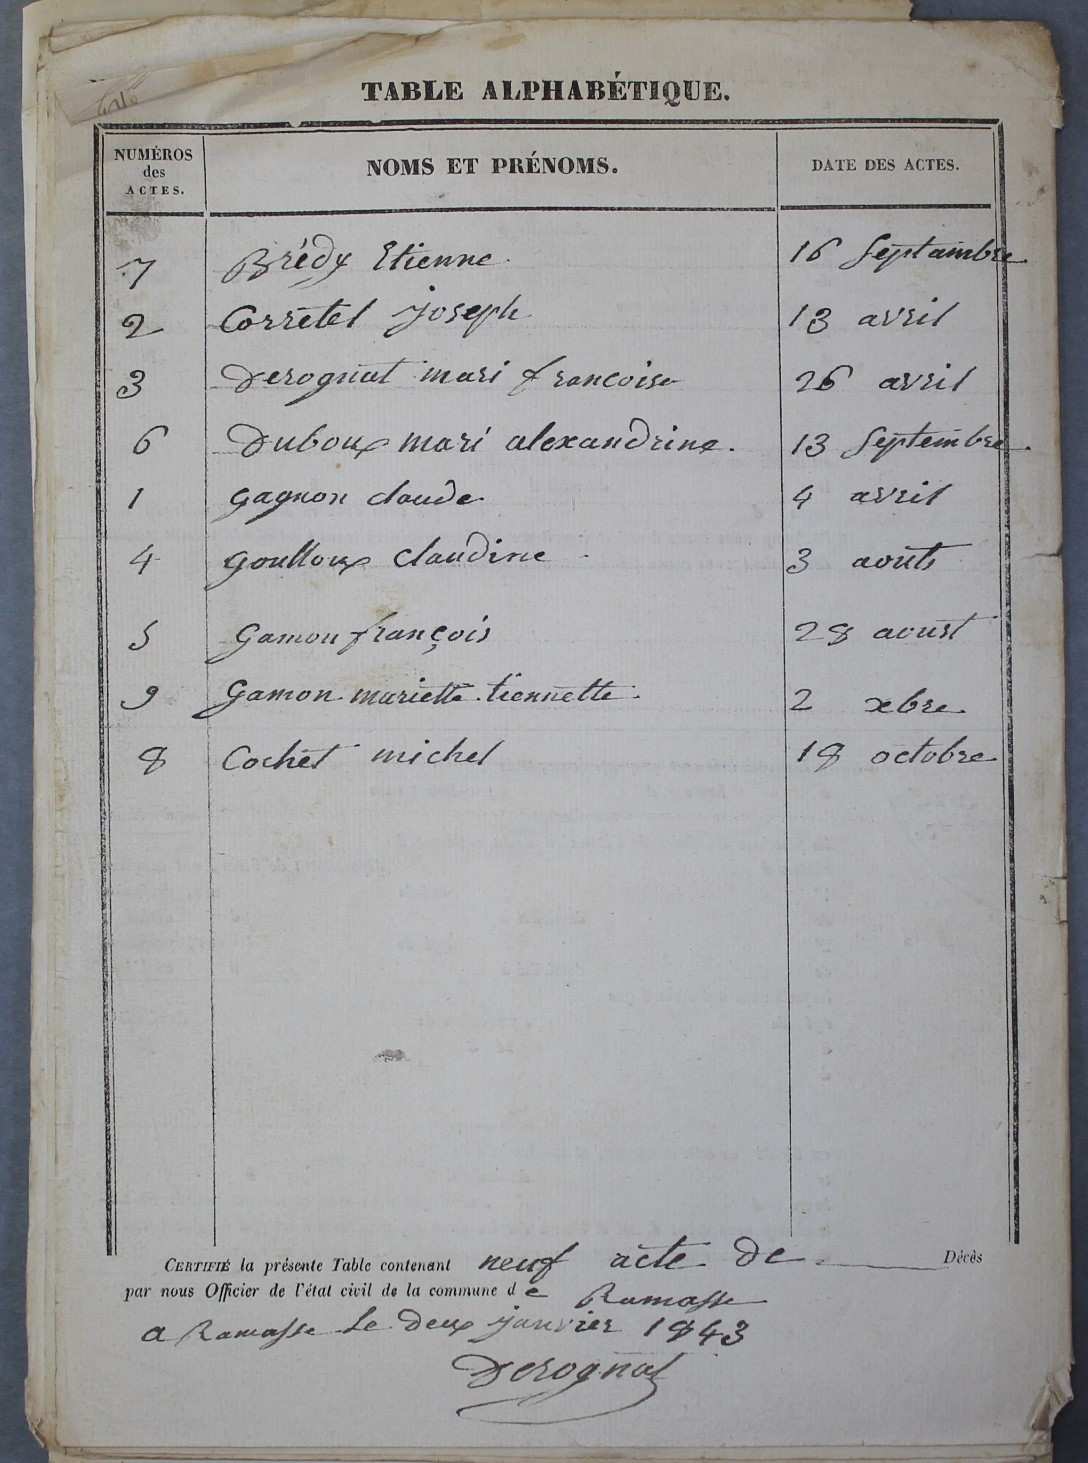 TABLE ALPHABÉTIQUE.
NUMÉROS des ACTES. NOMS ET PRÉNOMS. DATE DES ACTES.
7 Brédy Etienne 16 Septambre
2 Corretel joseph 13 avril
3 Derognat mari francoise 26 avril
6 Duboux mari alexandrine. 13 Septembre
1 gagnon claude 4 avril
4 goulloux claudine 3 aouts
5 gamon françois 28 aoust
9 gamon mariette tiennette 2 xbre
8 Cochet michel 18 octobre
CERTIFIÉ la présente Table contenant neuf acte de Décès
par nous Officier de l'état civil de la commune de Ramasse
a Ramasse le deux janvier 1843
Derognat